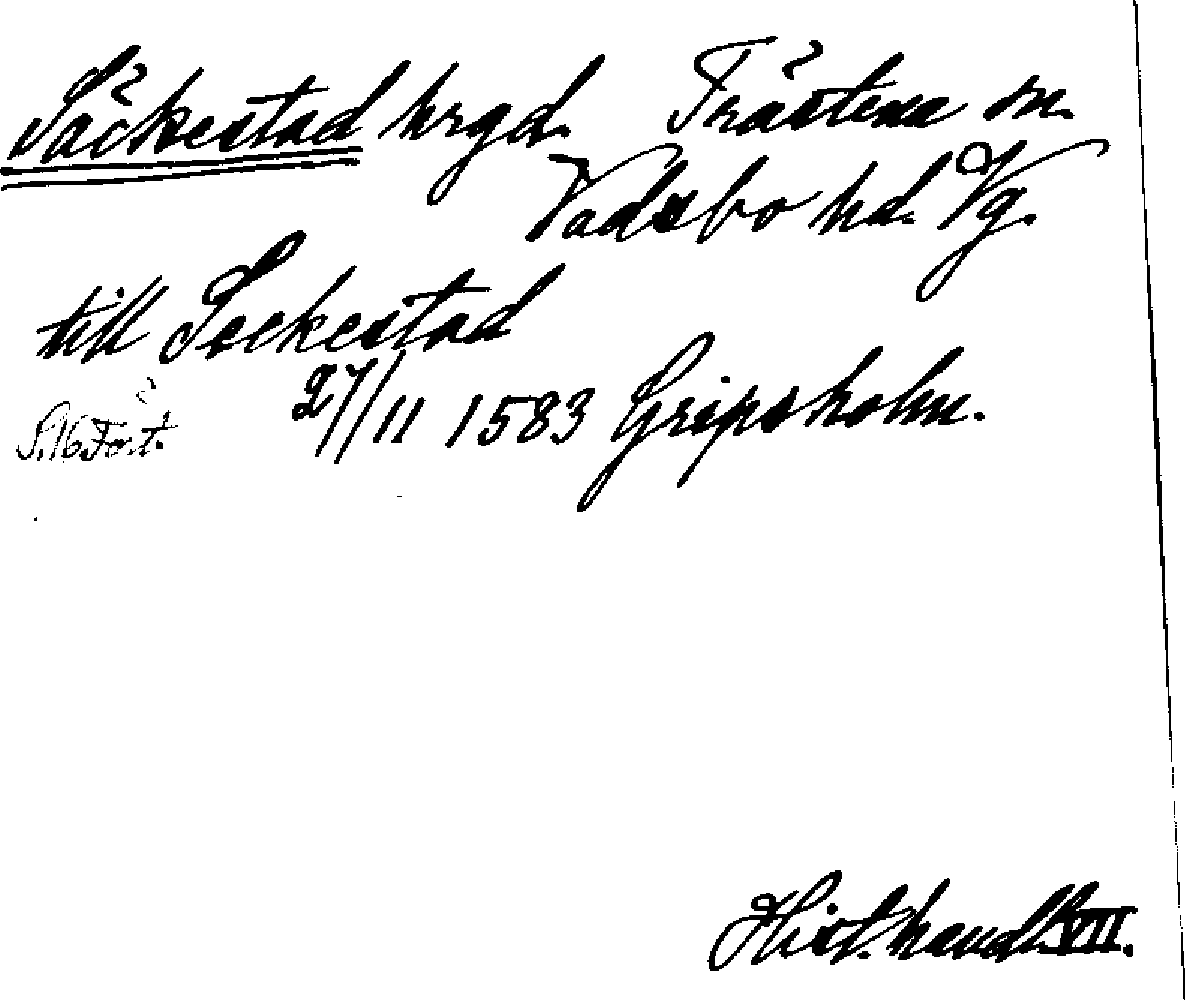 Säckestad hrgd. Trästena sn.
Vadsbo hd. Vg.
till Seckestad
27/11 1583 Gripsholm.
S. 16 Fört.
Hist. handl. VII.